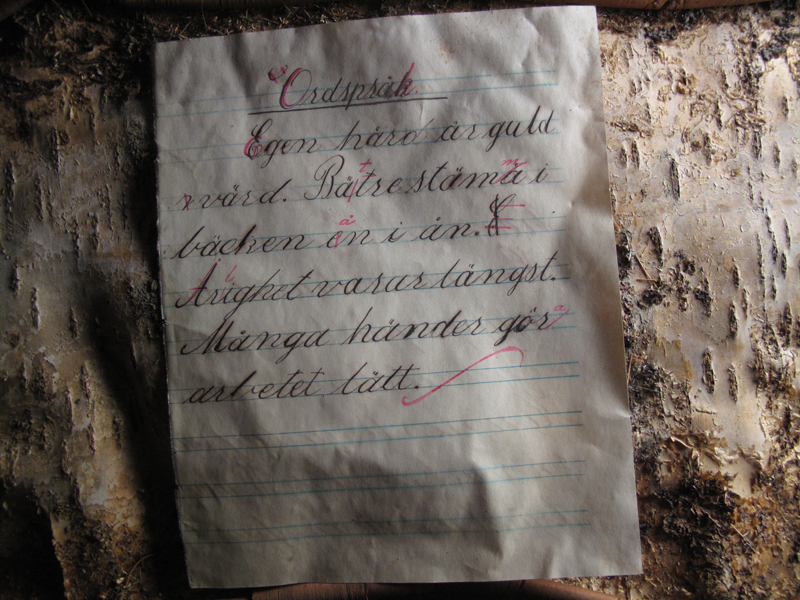 Ordspråk.
Egen härd är guld
värd. Bätre stäma i
bäcken än i ån.
Äright varar längst.
Många händer gör
arbetet lätt.